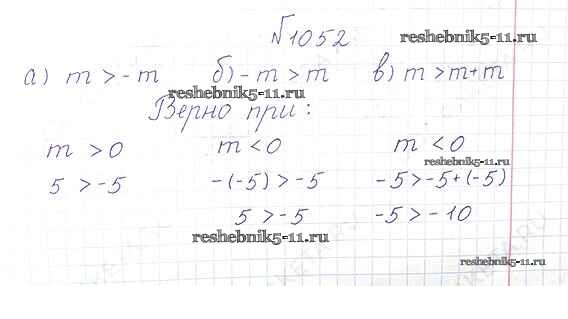 №1052
reshebnik5-11.ru
а) m > -m б) -m > m в) m > m+m
reshebnik5-11.ru
Верно при:
m > 0 m < 0 m < 0
reshebnik5-11.ru
5 > -5 -(-5) > -5 -5 > -5+(-5)
5 > -5 -5 > -10
reshebnik5-11.ru
reshebnik5-11.ru